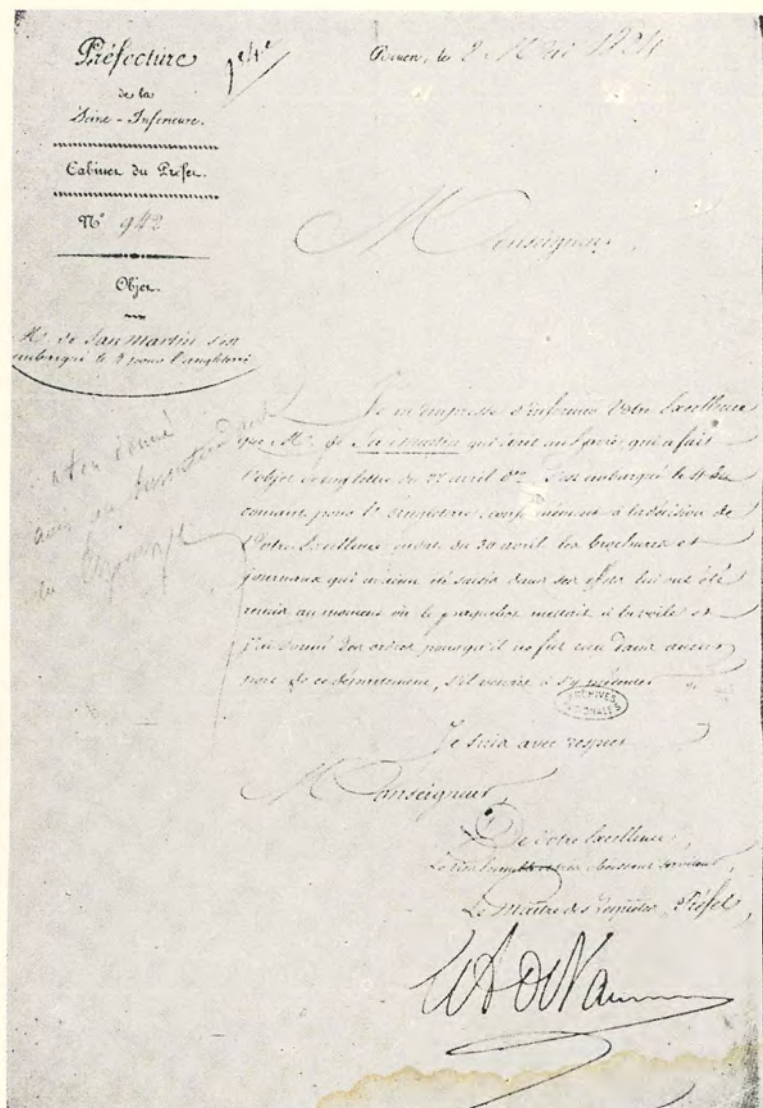 Préfecture
de la
Seine-Inférieure.
Cabinet du Préfet.
N° 942
Objet.
Mr. de San Martin s'est
embarqué le 4 pour l'angleterre
Rouen, le 8 Mai 1824
Monseigneur,
Je m'empresse d'informer Votre Excellence
que Mr. de San Martin qui a fait
l'objet de lettre du 27 avril s'est embarqué le 4 du
courant pour l'Angleterre, conformément à la décision de
Votre Excellence du 30 avril. les brochures et
journaux qui avaient été saisis dans ses effets lui ont été
remis au moment où le paquebot mettait à la voile et
j'ai donné des ordres pour qu'il ne fut reçu dans aucun
port de ce département, s'il venait à s'y présenter
ARCHIVES
NATIONALES
a-t-on donné
avis au
Je suis avec respect
Monseigneur,
De Votre Excellence,
Le très humble et très obéissant serviteur,
Le Maître des Requêtes, Préfet,